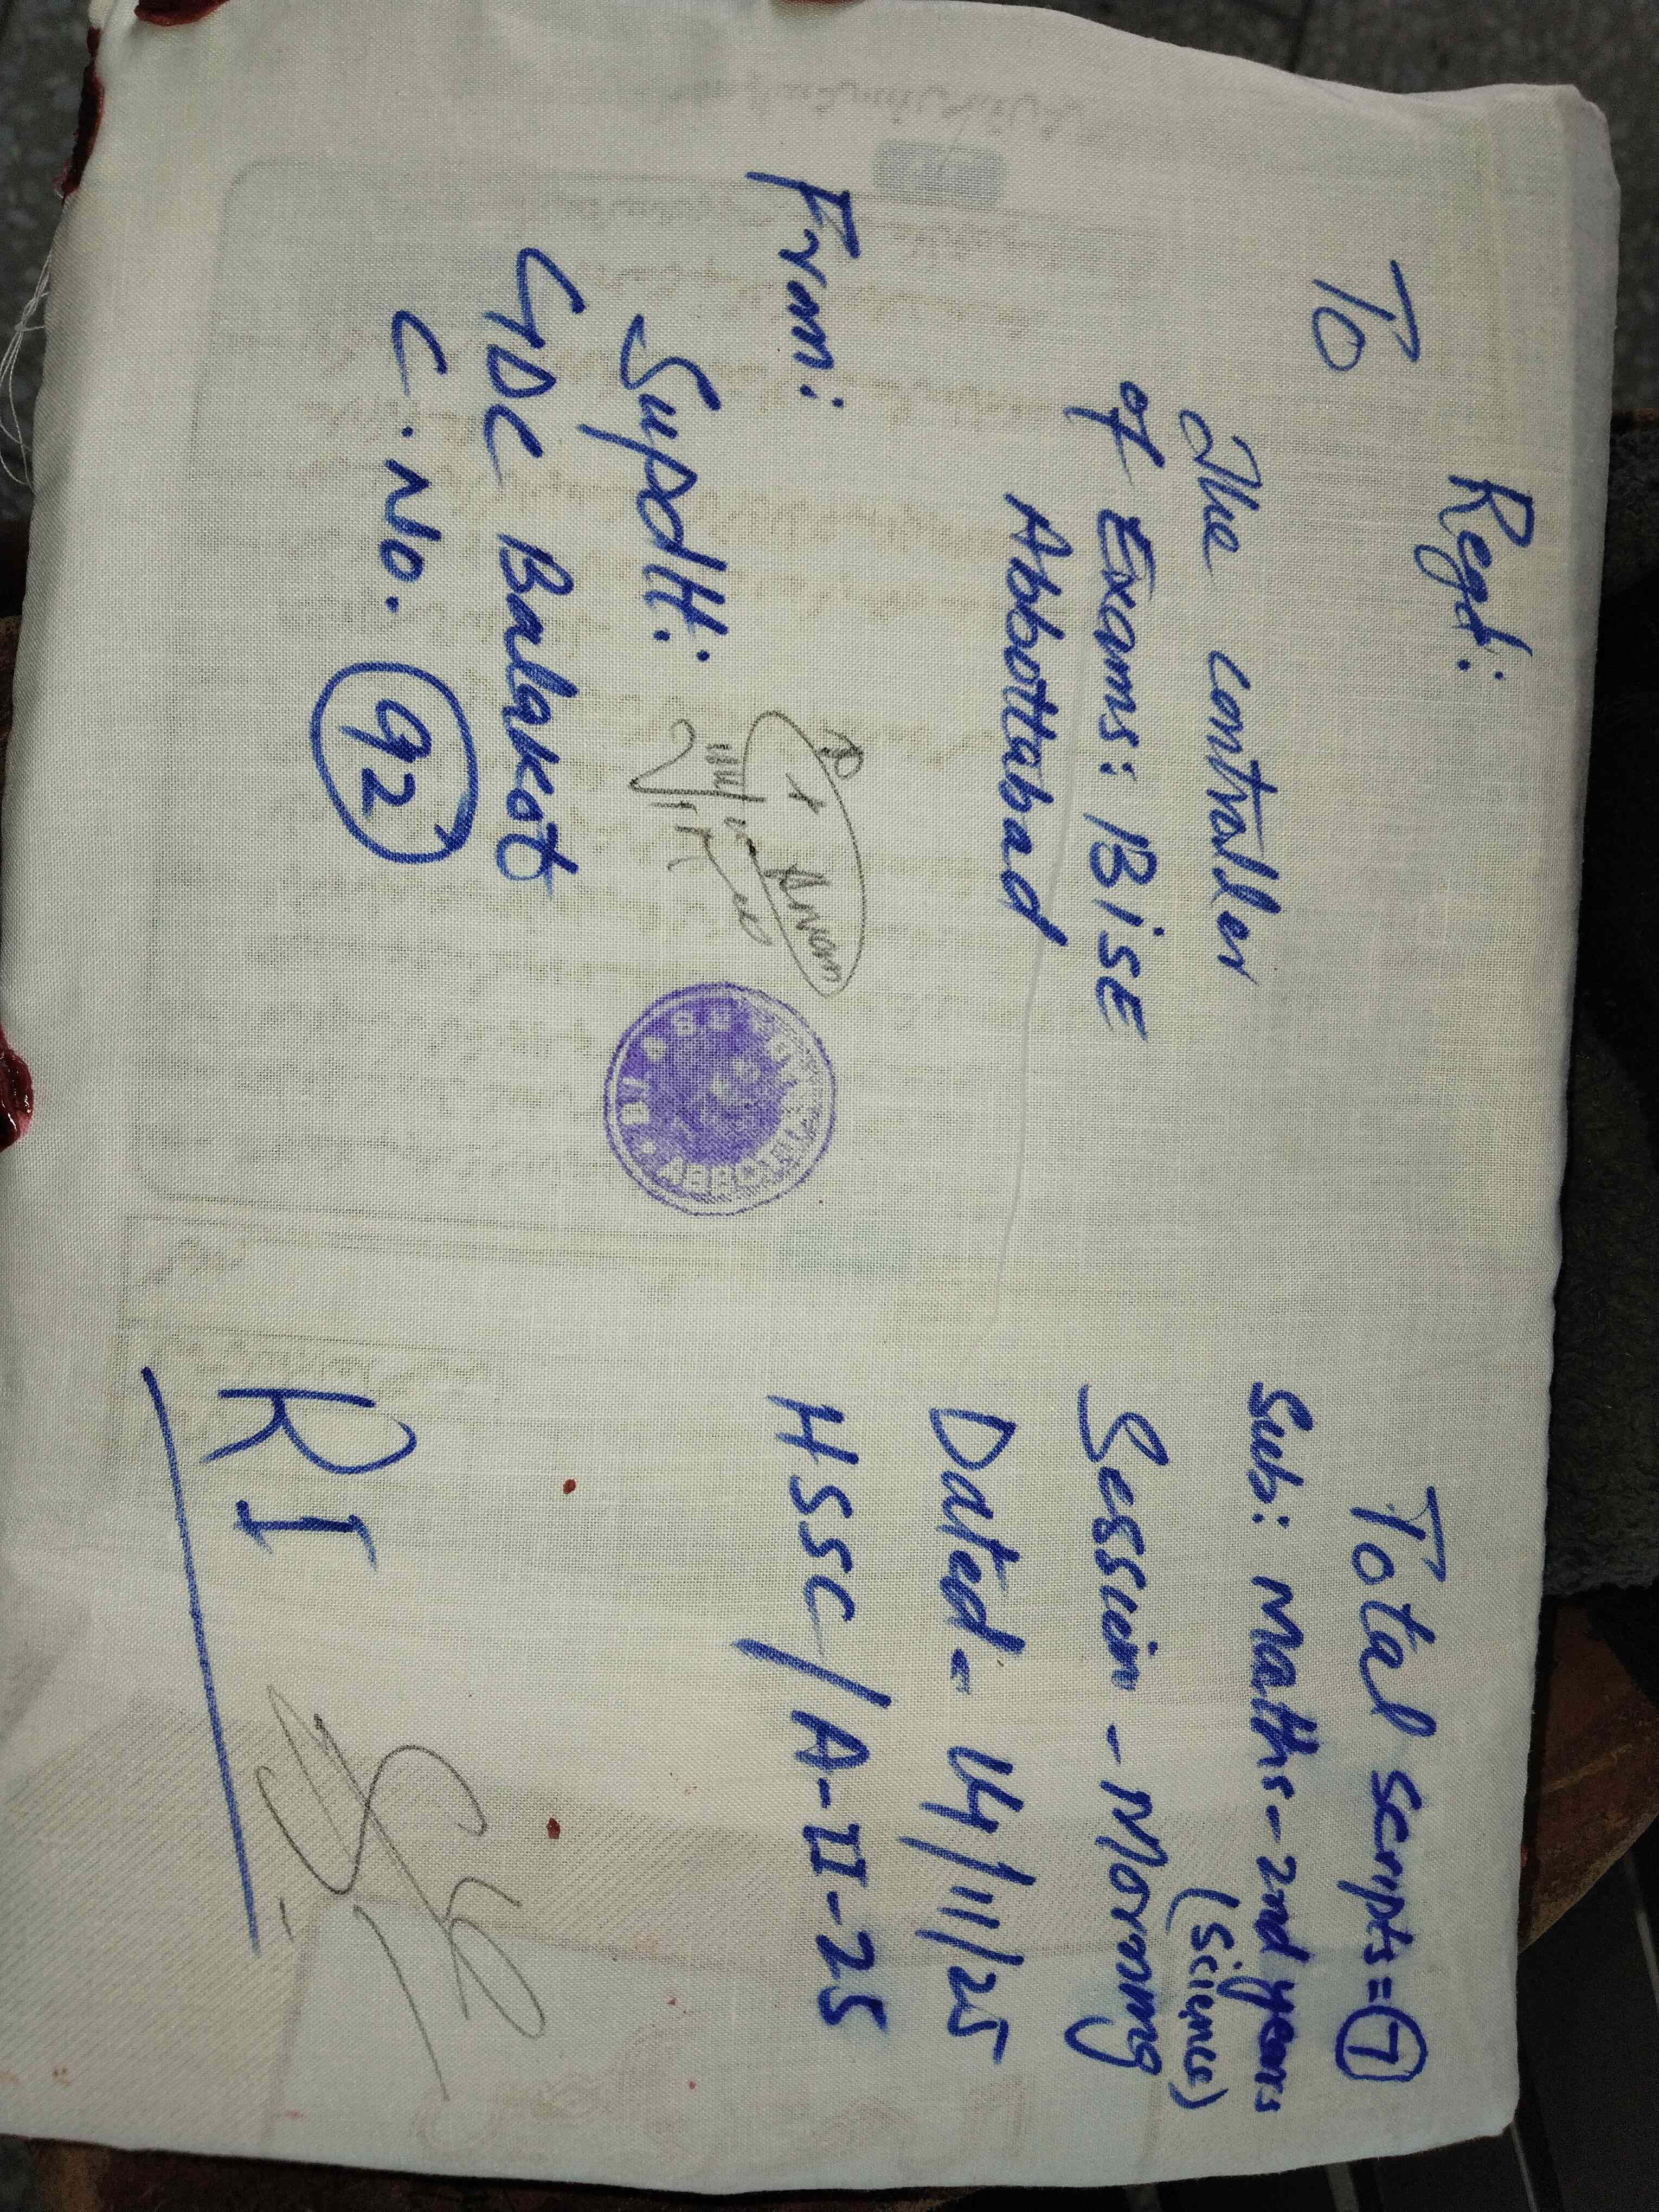 Regd:
To
The controller
of Exams: BISE
Abbottabad
From:
Supdtt:
GDC Balakot
C.No. 92
Total scripts = 7
Sub: Maths - 2nd years
(Science)
Session - Morning
Dated - 14/11/25
HSSC/A-II-25
RI